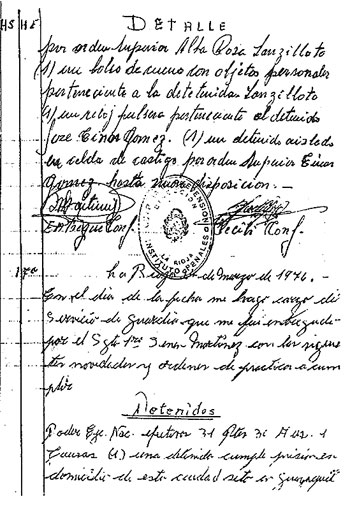 HS HE DETALLE
por orden Superior Alba Rosa Lanzilloto
(1) un bolso de cuero con objetos personales
perteneciente a la detenida Lanzilloto
(1) un reloj pulsera perteneciente al detenido
José Gomez. (1) un detenido aislado
en celda de castigo por orden Superior
Gomez hasta nueva disposicion.-
Entregue Conf. Recibi Conf.
La Rioja de Marzo de 1976.-
En el día de la fecha me hago cargo del
Servicio de Guardia que me fui entregado
por el Sgto 1ro Martínez con las siguien
tes novedades y ordenes de practicas a cum
plir
Detenidos
Poder Eje. Nac. efectivos 31 Ptes 30 Aus. 1
Causas (1) una detenida cumple prision en
domicilio de esta ciudad sito en Guayaquil